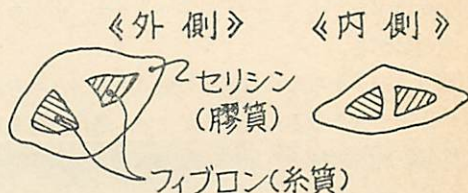 《外側》 《内側》
セリシン
(膠質)
フィブロン(糸質)